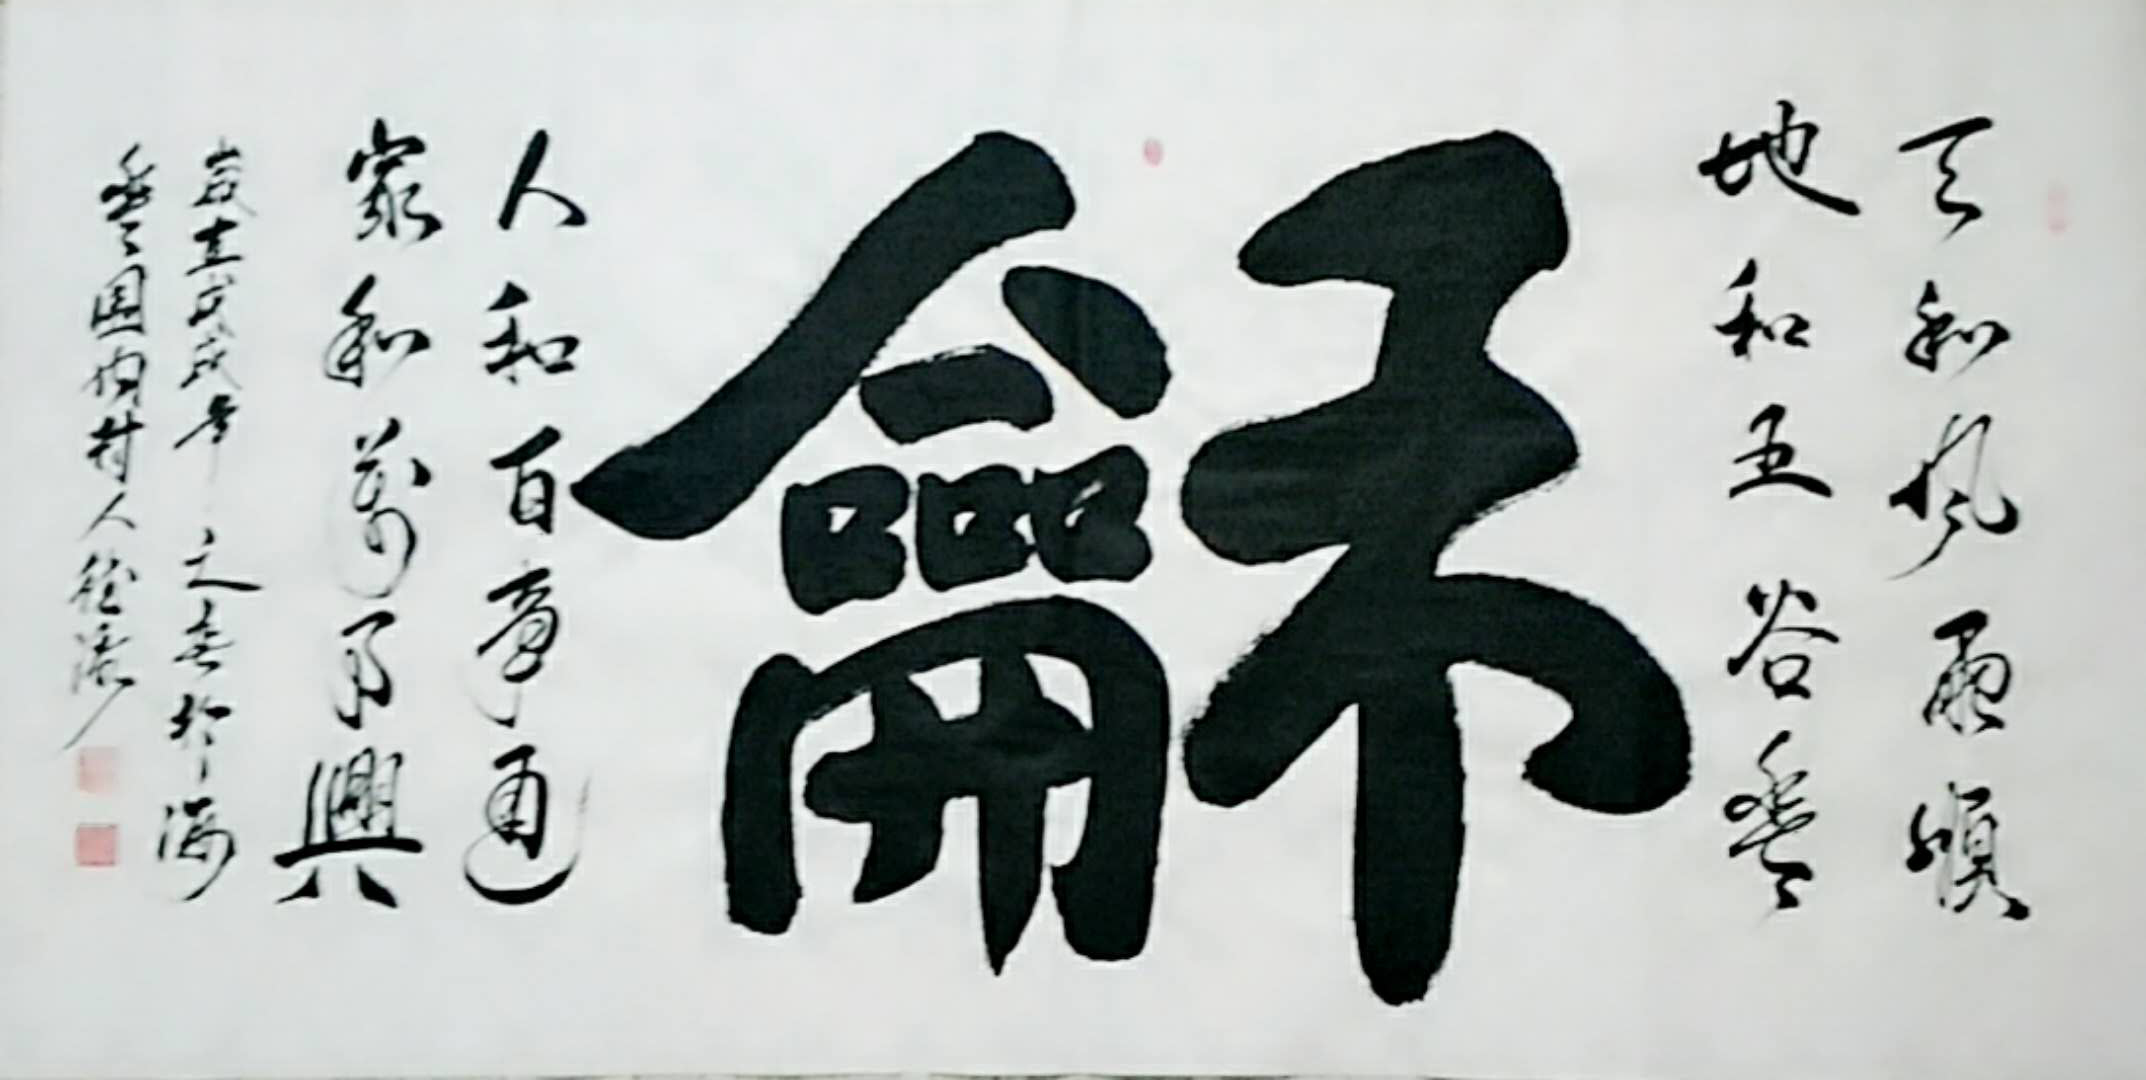 天和風雨順
地和五谷登
龢
人和百事通
家和萬事興
歲在戊戌年之春於海
圆 村人